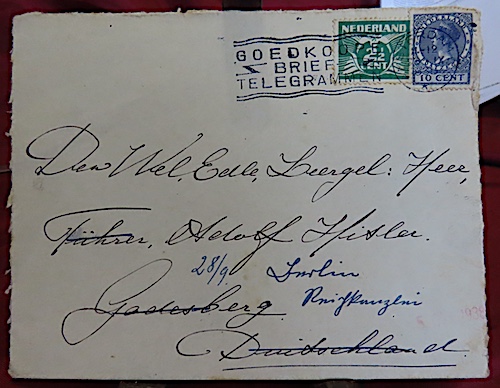 NEDERLAND
GOEDKO
BRIEF
TELEGRAMMEN
2½
CENT
10 CENT
Den Wel. Edle. Zeergel: Heer,
Führer, Adolf Hitler.
28/9 Berlin
Godesberg Reichskanzlei
Duitschland.